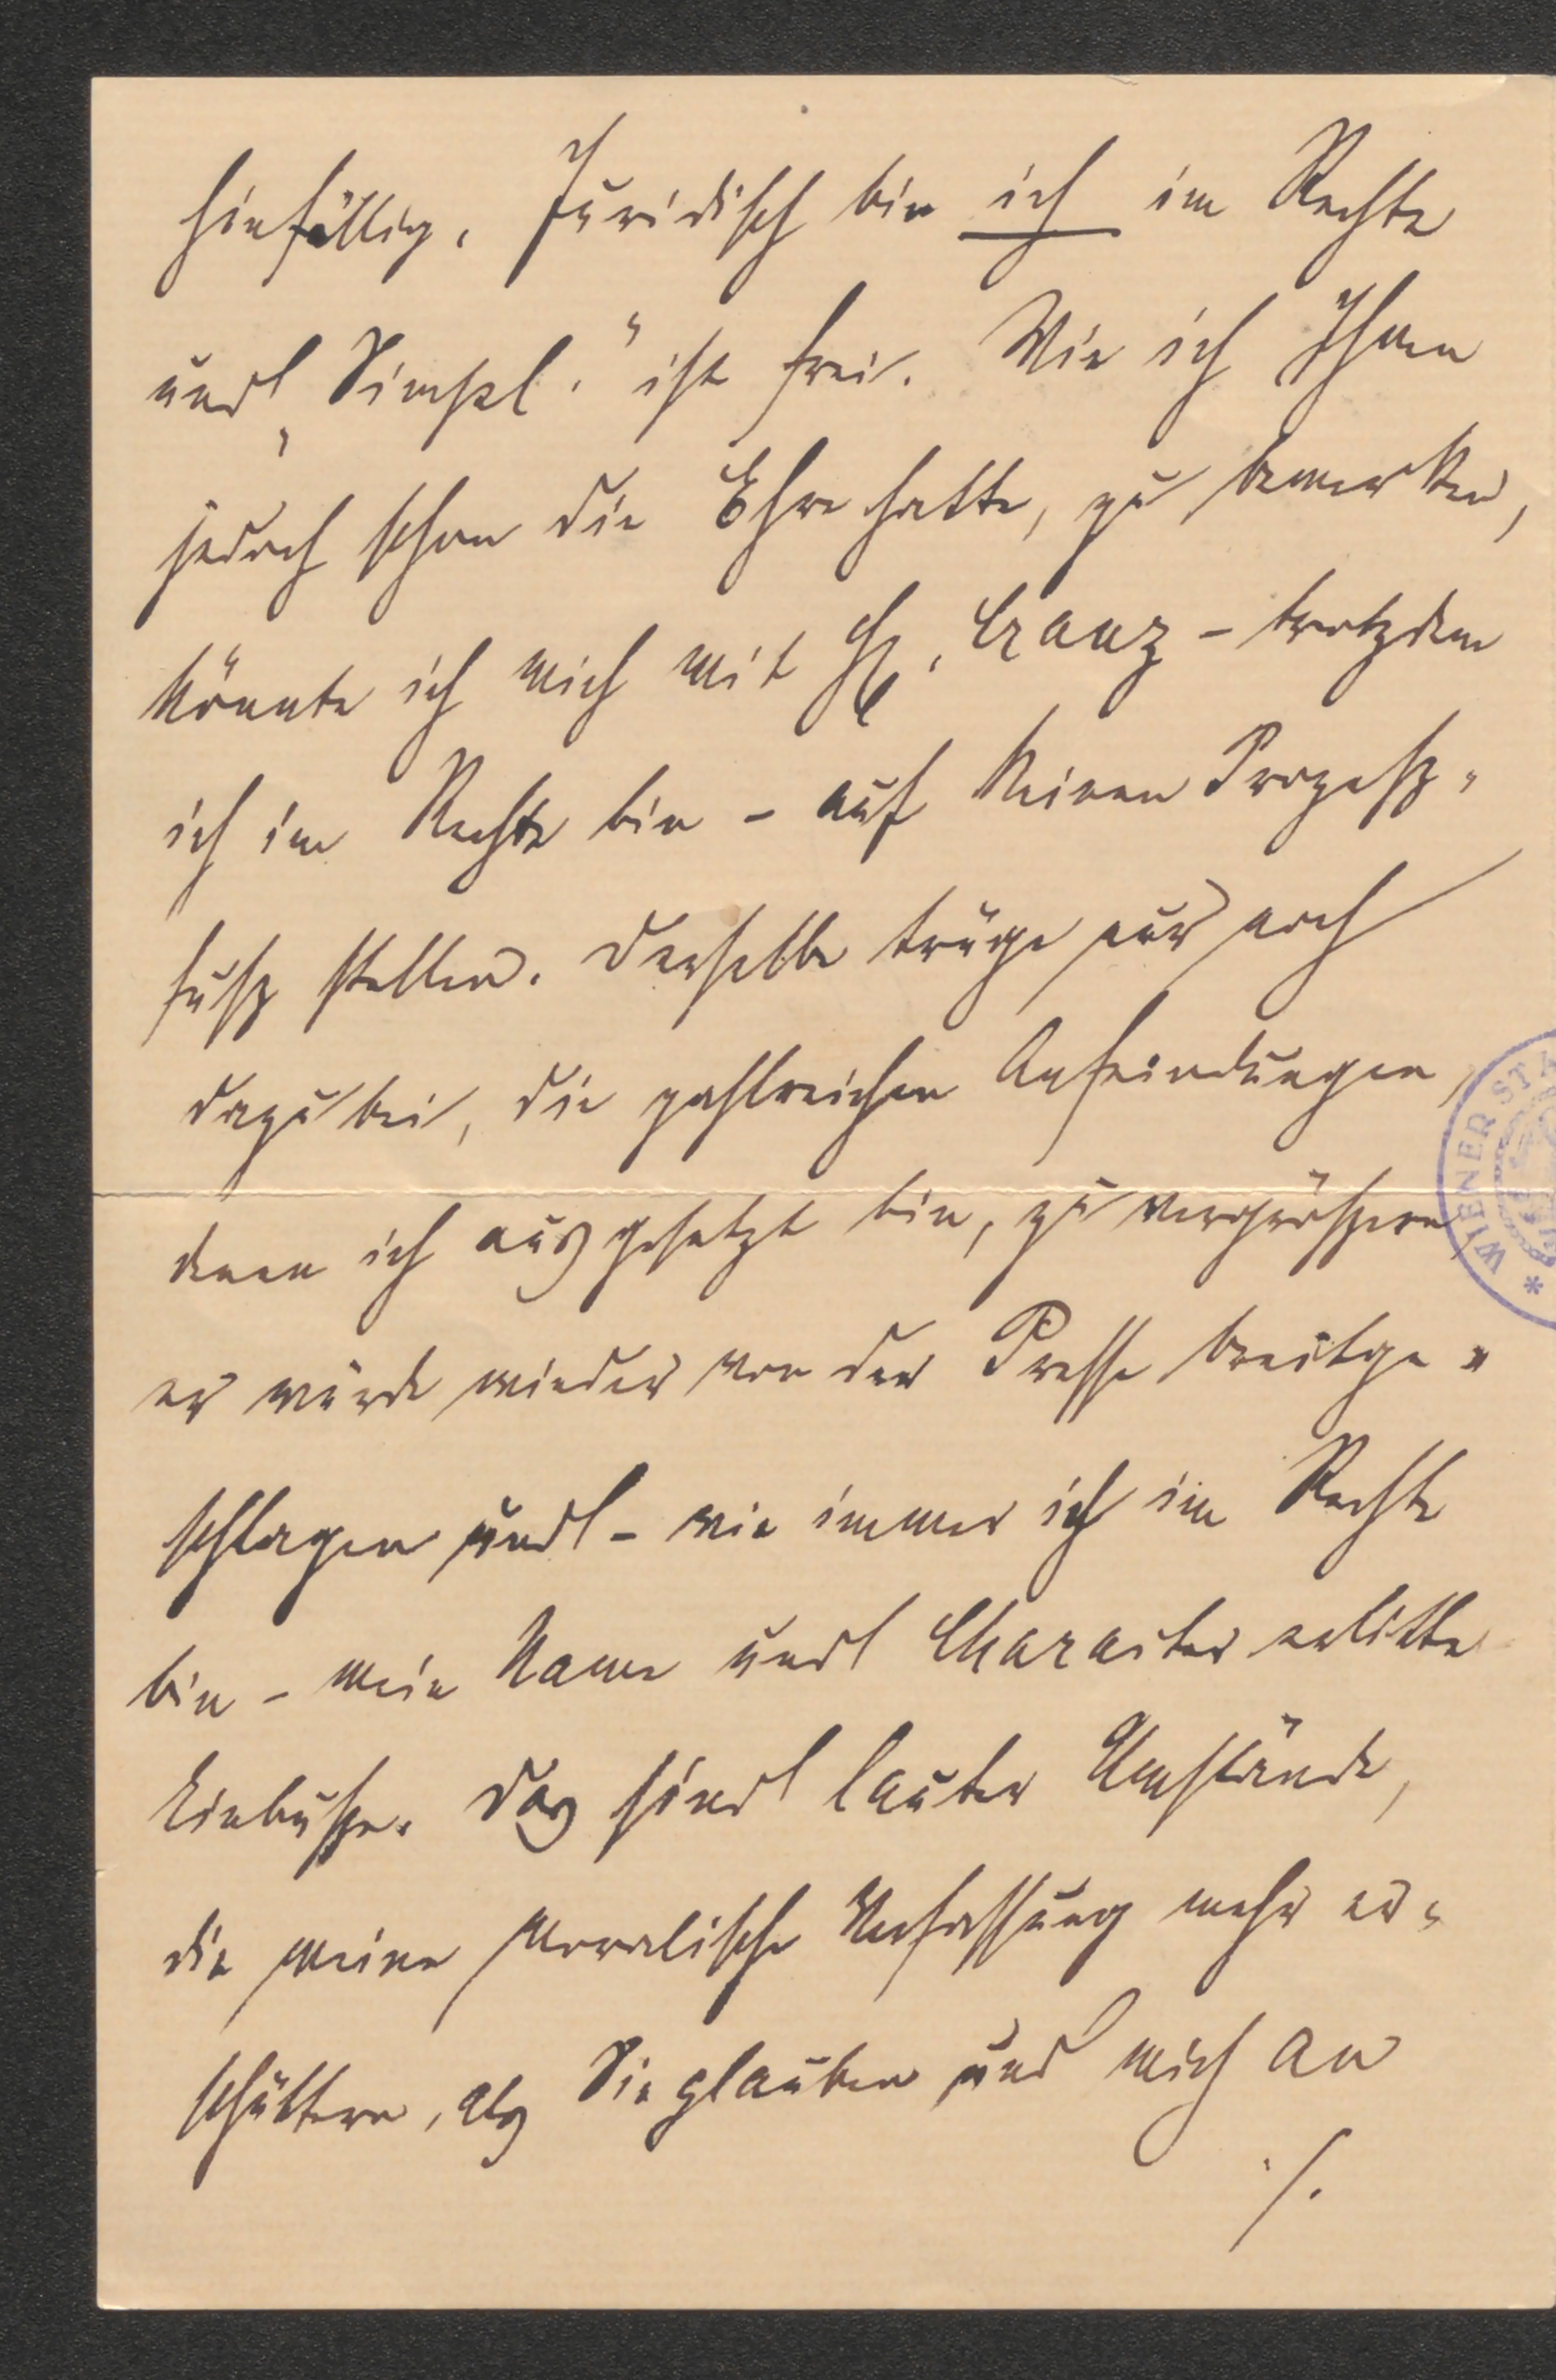 hinfällig. Juridisch bin ich im Rechte
und „Simpl." ist frei. Wie ich Ihnen
jedoch schon die Ehre hatte, zu bemerken,
könnte ich mich mit H. Cranz – trotzdem
ich im Rechte bin – auf keinen Prozeß-
fuß stellen. Derselbe trüge nur noch
dazu bei, die zahlreichen Anfeindungen,
denen ich ausgesetzt bin, zu vergrößern,
er würde wieder von der Presse breitge-
schlagen und – wie immer ich im Rechte
bin – mein Name und Charakter erlitte
Einbuße. Das sind lauter Umstände,
die meine moralische Verfassung mehr er-
schüttern, als Sie glauben und mich an
./.
WIENER STA